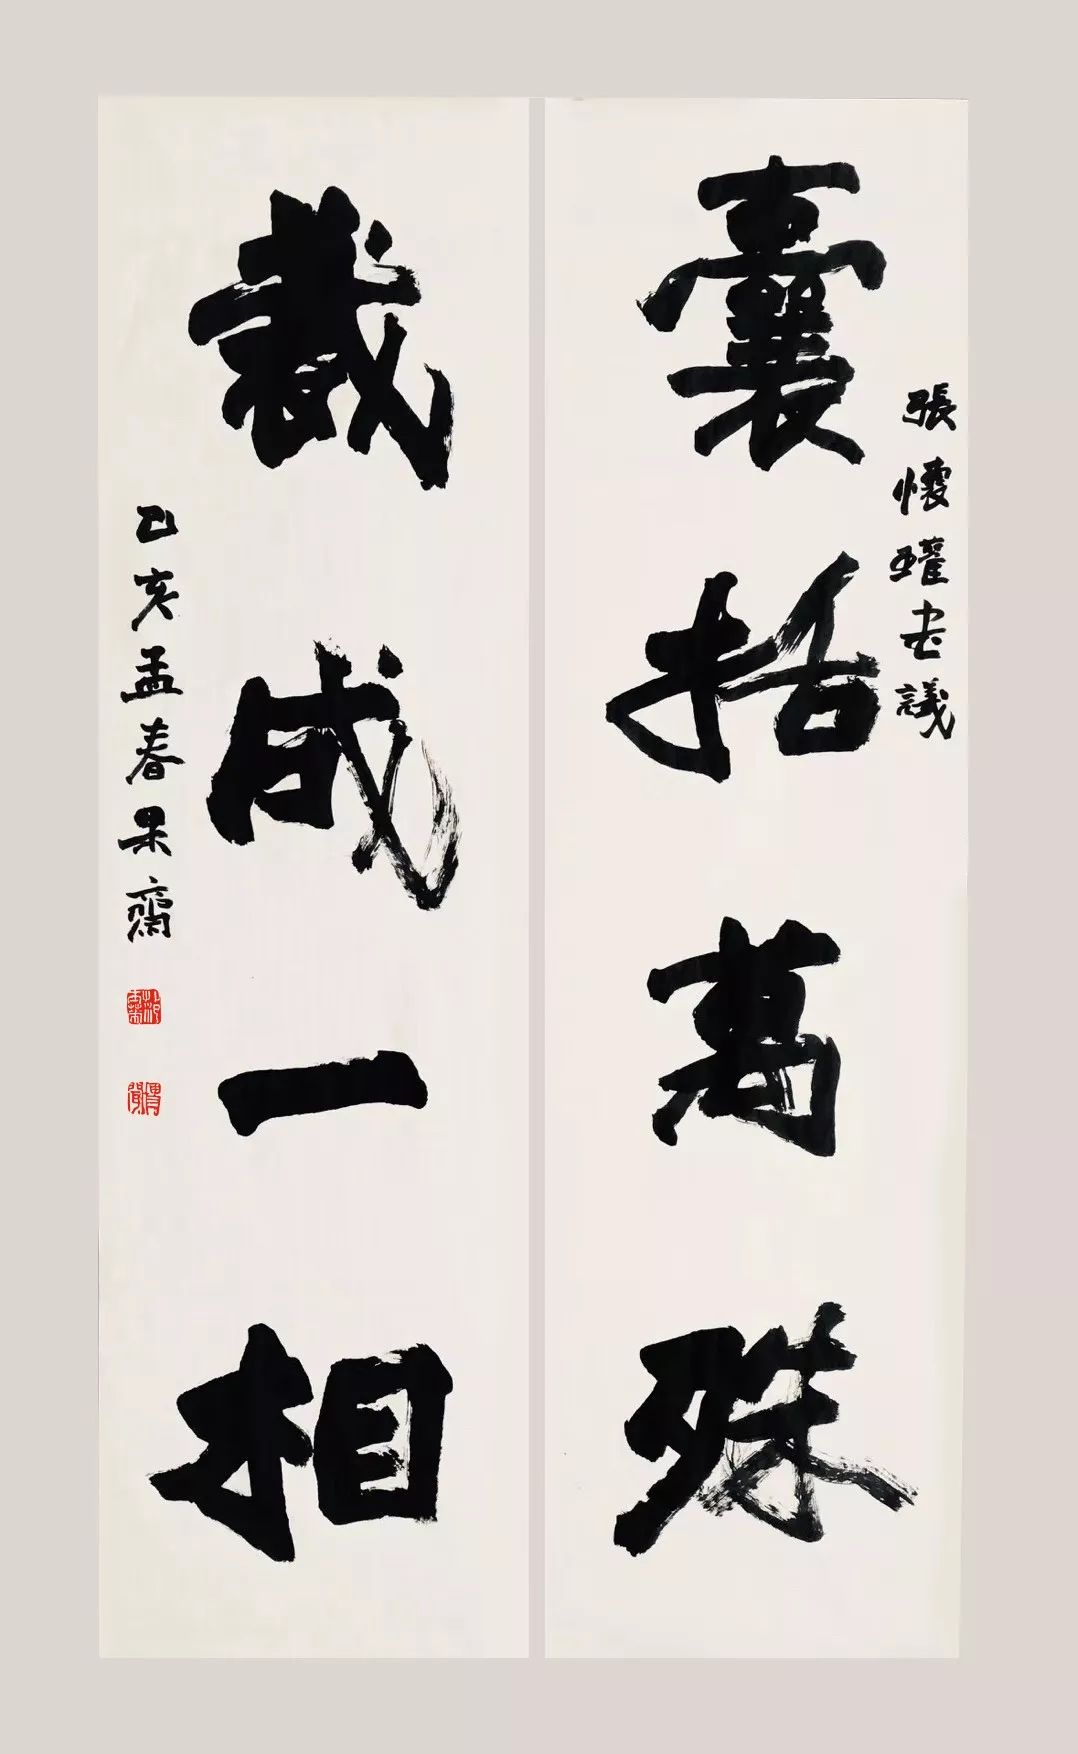 囊括萬殊
張懷瓘书議
裁成一相
乙亥孟春果齋